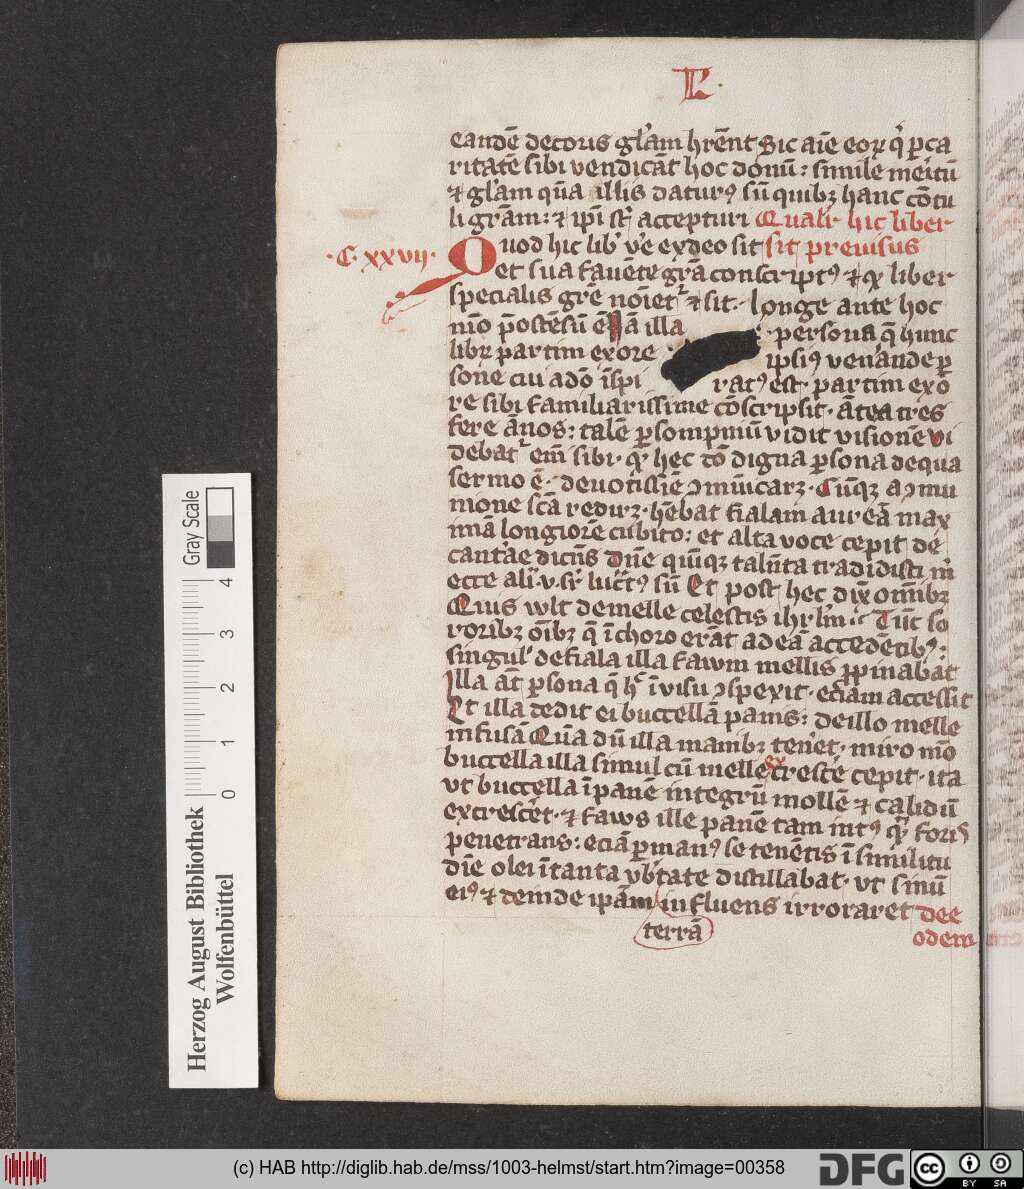 L.
eandē decoris gl'am hrēnt Sic aīe eoꝝ q̇ ꝑca
ritatē sibi vendicāt hoc donū: simile meītū
⁊ gl'am qūa illis daturꝰ sū quibꝫ hanc cōtu
li grām: ⁊ ip̄i st̄ accepturi Qualr̄ hic liber
·C·xxvij· Quod hic lib' v̄e ex deo sit sit previsus
et sua favēte grā conscriptꝰ ⁊ qꝫ liber
specialis grē noīetr̄ ⁊ sit· Longe ante hoc
mo p̄ostēsū ē Nā illa persona q̄ hunc
librꝫ partim ex ore ipsiꝰ venāndeꝑ
sone cui a dō īspi ratꝰ est· partim exo
re sibi familiarissime cōscripsit· ātea tres
fere ānos: talē ꝑ sompniū vidit visionē vi
debatr̄ em̄ sibi· qꝫ hec tō digna ꝑsona de qua
sermo ē· devotissiē ꝯmūicarꝫ· Cūqꝫ a ꝯmu
nione scā redirꝫ· hēbat fialam aureā max
imā longiorē cubito: et alta voce cepit de
cantāe dicēns dn̄e quīqꝫ talēnta tradidisti m̄
ecce ali' v· sr̄ luc̄tꝰ sū Et post hec dix̄ omībꝫ
Quis vlt de melle celestis ihrl'm̄ Tūc so
roribꝫ oībꝫ q̄ ī choro erāt ad eā accedētibꝰ:
singul' de fiala illa favm mellis ꝓpinabāt
Illa aūt ꝑsona q̄ hꝭ ī visu ꝯspexit· eciam accessit
Et illa dedit ei buccellā panis: de illo melle
infusā Qūa dū illa manibꝫ tenēt· miro mō
buccella illa simul cū melle excrescē cepit· ita
vt buccella ī panē integrū mollē ⁊ calidū
excrescēt· ⁊ favus ille panē tam intꝰ qꝫ foris
penetrans: eciā ꝑ manꝰ se tenētis ī similitu
dīe olei ī tanta vb'tate distillabat· vt sinū
eiꝰ ⁊ deinde ipām influens irroraret De e
terrā odem
Gray Scale
0 1 2 3 4
Herzog August Bibliothek
Wolfenbüttel
(c) HAB http://diglib.hab.de/mss/1003-helmst/start.htm?image=00358
DFG
cc BY SA